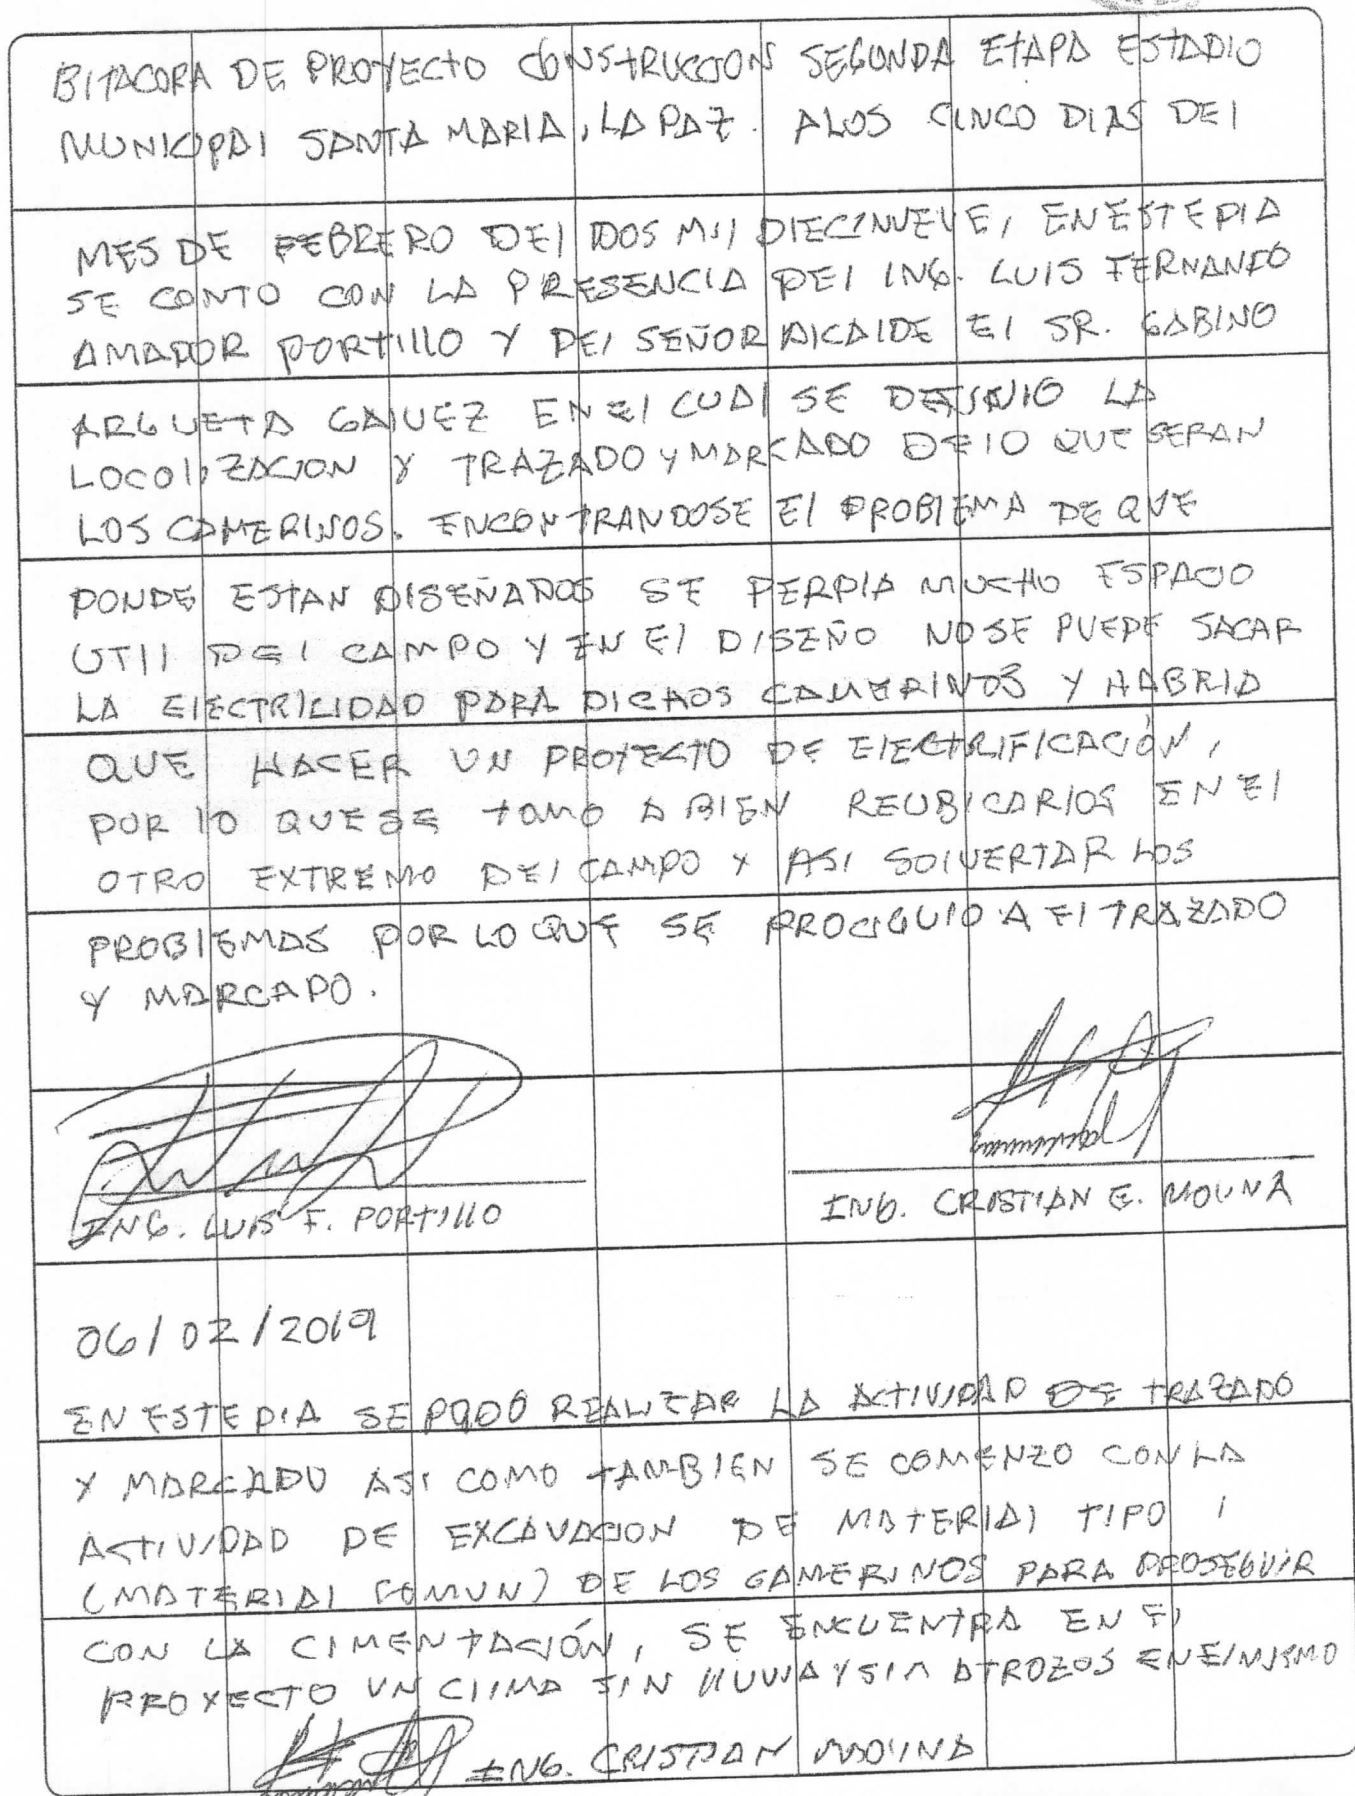 BITACORA DE PROYECTO CONSTRUCCION SEGUNDA ETAPA ESTADIO
MUNICIPAL SANTA MARIA, LA PAZ. A LOS CINCO DIAS DEL
MES DE FEBRERO DEL DOS MIL DIECINUEVE, EN ESTE DIA
SE CONTO CON LA PRESENCIA DEL ING. LUIS FERNANFO
AMADOR PORTILLO Y DEL SEÑOR ALCALDE EL SR. GABINO
ARGUETA GALVEZ EN EL CUAL SE DEFINIO LA
LOCOLIZACION Y TRAZADO Y MARCADO DE LO QUE SERAN
LOS CAMERINOS. ENCONTRANDOSE EL PROBLEMA DE QUE
DONDE ESTAN DISEÑADOS SE PERDIA MUCHO ESPACIO
UTIL DEL CAMPO Y EN EL DISEÑO NO SE PUEDE SACAR
LA ELECTRICIDAD PARA DICHOS CAMERINOS Y HABRIA
QUE HACER UN PROYECTO DE ELECTRIFICACIÓN,
POR LO QUE SE TOMO A BIEN REUBICARLOS EN EL
OTRO EXTREMO DEL CAMPO Y ASI SOLVERTAR LOS
PROBLEMAS POR LO QUE SE PROCIGUIO A EL TRAZADO
Y MARCADO.
ING. LUIS F. PORTILLO
ING. CRISTIAN E. MOLINA
06/02/2019
EN ESTE DIA SE REALIZAR LA ACTIVIDAD DE TRAZADO
Y MARCADO ASI COMO TAMBIEN SE COMENZO CON LA
ACTIVIDAD DE EXCAVACION DE MATERIAL TIPO I
(MATERIAL COMUN) DE LOS CAMERINOS PARA PROSEGUIR
CON LA CIMENTACIÓN, SE ENCUENTRA EN EL
PROYECTO UN CLIMA SIN LLUVIA Y SIN ATROZOS EN EL MISMO
ING. CRISTIAN MOLINA